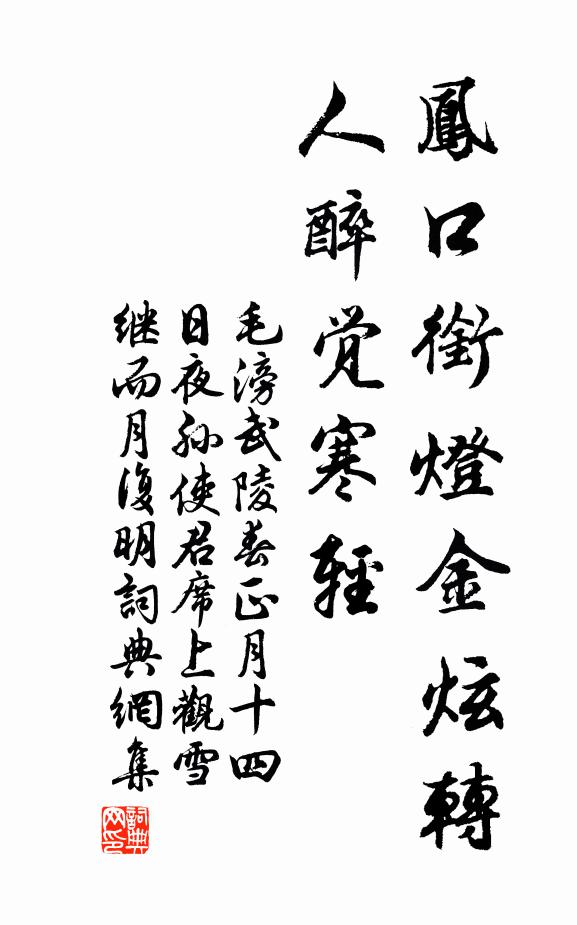 鳳口銜燈金炫轉
人醉覺寒輕
毛滂武陵春正月十四
日夜孫使君席上觀雪
继而月復明詞典網集
詞典网印